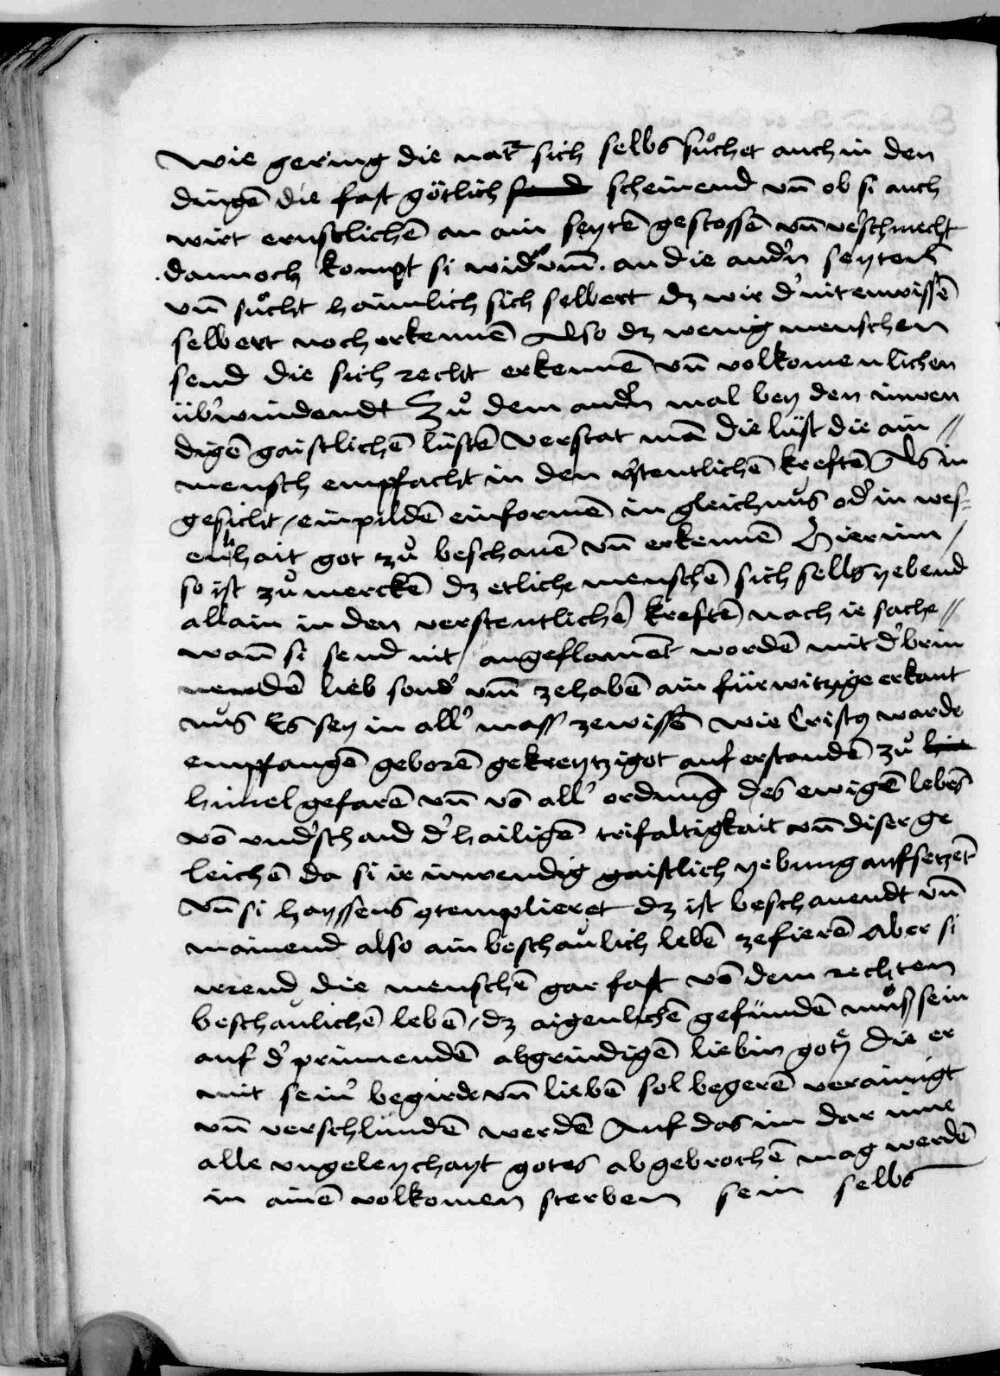 Wie gering die nat᷑ sich selbs sůchet auch in den
dingē die fast götlich scheinend vn̄ ob si auch
wirt ernstlichē an ain seytē gestossē vn̄ v᷑schmecht
dannoch kompt si wid᷑vm̄ an die and᷑n seyten
vn̄ sůcht haimlich sich selbert dz wir d᷑ nit enwissē
selbert noch erkennē Also dz wenig menschen
send die sich recht erkennē vn̄ volkomenlichen
üb᷑windendt Zů dem and᷑n mal bey den inwen
digē gaistlichē lüstē verstat mā die lüst die ain //
mensch empfacht in den v᷑stentlichē kreftē Als in
gesicht / einpildē einformē in gleichnus od᷑ in wes⸗
enhait got zů beschauē vn̄ erkennē Hierum /
so ist zů merckē dz etliche menschē sich selbs yebend
allain in den verstentlichē kreftē nach ir sache //
wan̄ si send nit angeflamēt wordē mit d᷑ brin
nendē lieb sond᷑ vm̄ zehabē ain fürwitzige erkant
nus Es sey in all᷑ mass zewissē wie Cristꝯ warde
empfangē geborē gekreytzigot auf erstandē zů
himel gefarē vn̄ vō all᷑ ordnung des ewigē lebēs
vō vnd᷑schaid d᷑ hailigē trifaltigkait vn̄ diser ge
leichē da si ir inwendig gaistlich yebung aufsetzēt
Vn̄ si hayssens ꝯtemplieret dz ist beschauendt vn̄
mainend also ain beschaulich lebē zefierē Aber si
irrend die menschē gar fast vō dem rechten
beschaulichē lebē / dz aigenlichē gefundē můs sein
auf d᷑ prinnendē abgrindigē liebin gotz die er
mit sein᷑ begirde vn̄ liebē sol begerē verainigt
vn̄ verschlundē werdē Auf das im dar inne
alle vngeleychayt gotes abgebrochē mag werdē
in ainē volkomen sterben sein selbs